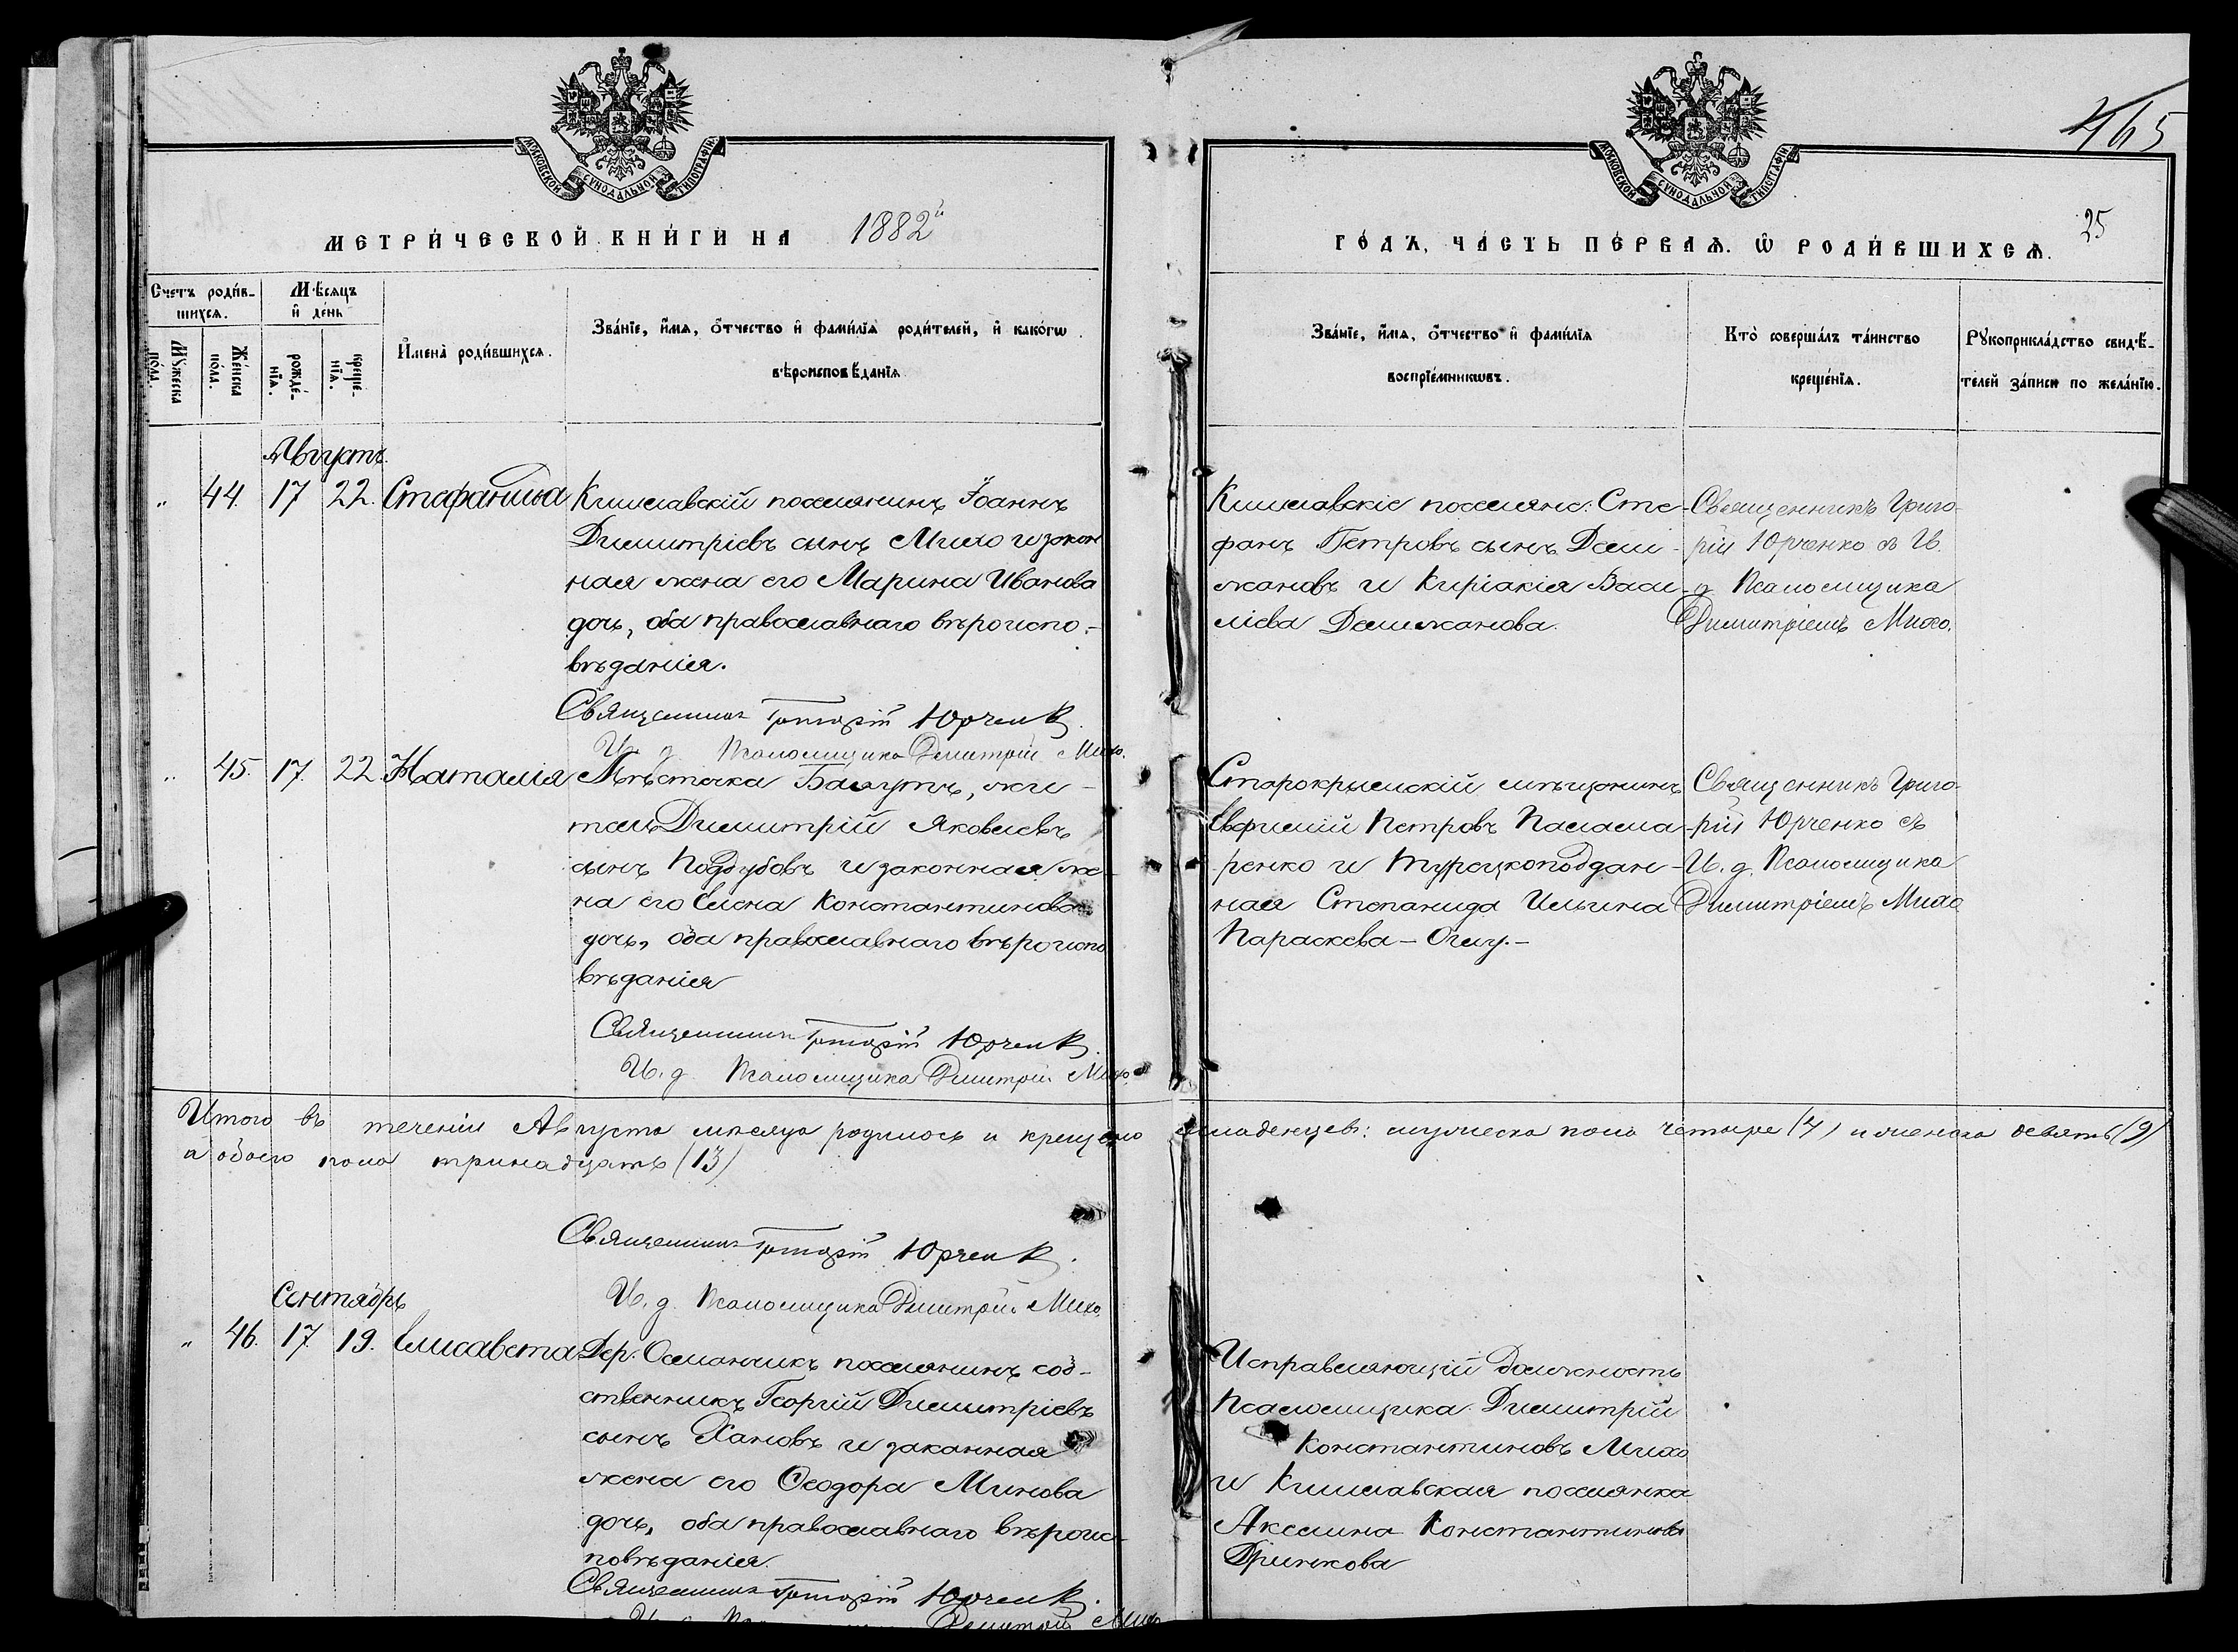 465
МОСКОВСКОЙ СѴНОДАЛЬНОЙ ТИПОГРАФІИ
МОСКОВСКОЙ СѴНОДАЛЬНОЙ ТИПОГРАФІИ
МЕТРИ́ЧЕСКОЙ КНИ́ГИ НА 1882й
ГО́ДЪ, ЧА́СТЬ ПЕ́РВАѦ. Ѡ҆ РОДИ́ВШИХСѦ.
25
Сче́тъ роди́в-
шихсѧ.
Мѣ́сѧцъ
и҆ де́нь
Мꙋ́жеска по́ла.
Же́нска по́ла.
рожде́-
нїѧ.
креще́-
нїѧ.
И҆мена̀ роди́вшихсѧ.
Зва́нїе, и҆́мѧ, ѻ҆́тчество и҆ фами́лїѧ роди́телей, и҆ како́гѡ
вѣроисповѣ́данїѧ
Зва́нїе, и҆́мѧ, ѻ҆́тчество и҆ фами́лїѧ
воспрїе́мникѡвъ.
Кто̀ соверша́лъ та́инство
креще́нїѧ.
Рꙋкоприкла́дство свидѣ́-
телей за́писи по жела́нїю.
Августъ.
„ 44. 17 22. Стефанида
Кишлавскій поселянинъ Іоаннъ
Димитріевъ сынъ Михо и закон
ная жена его Марина Иванова
дочь, оба православнаго вѣроиспо-
вѣданія.
Священникъ Григорій Юрченко
И. д. Псаломщика Димитрій Михо.
Кишлавскіе поселяне: Сте-
фанъ Петровъ сынъ Дели-
жановъ и Киріакія Васи-
ліева Делижанова.
Священникъ Григо-
рій Юрченко съ И.
д. Псаломщика
Димитріемъ Михо.
„ 45. 17. 22. Наталія
Мѣстечка жи-
тель Димитрій Яковлевъ
сынъ Поддубовъ и законная же-
на его Елена Константинова
дочь, оба православнаго вѣроиспо
вѣданія
Священникъ Григорій Юрченко
И. д. Псаломщика Димитрій Михо.
Старокрымскій мѣщанинъ
Евфимій Петровъ Паламa-
ренко и Турецкоподдан-
ная Степанида Ильина
Параскева –
Священникъ Григо-
рій Юрченко съ
И. д. Псаломщика
Димитріемъ Михо
Итого въ теченіи Августа мѣсяца родилось и крещено младенцевъ: мужеска пола четыре (4) и женска девять (9)
а обоего пола тринадцать (13)
Священникъ Григорій Юрченко.
И. д. Псаломщика Димитрій Михо.
Сентябрь
„ 46. 17. 19. Елисавета
Дер. Османчикъ поселянинъ соб-
ственникъ Георгій Димитріевъ
сынъ Хановъ и законная
жена его Ѳеодора Минова
дочь, оба православнаго вѣроис-
повѣданія.
Священникъ Григорій Юрченко.
Димитрій Михо
Исправляющій должность
Псаломщика Димитрій
Константиновъ Михо
и Кишлавская поселянка
Акелина Константинова
Гринкова